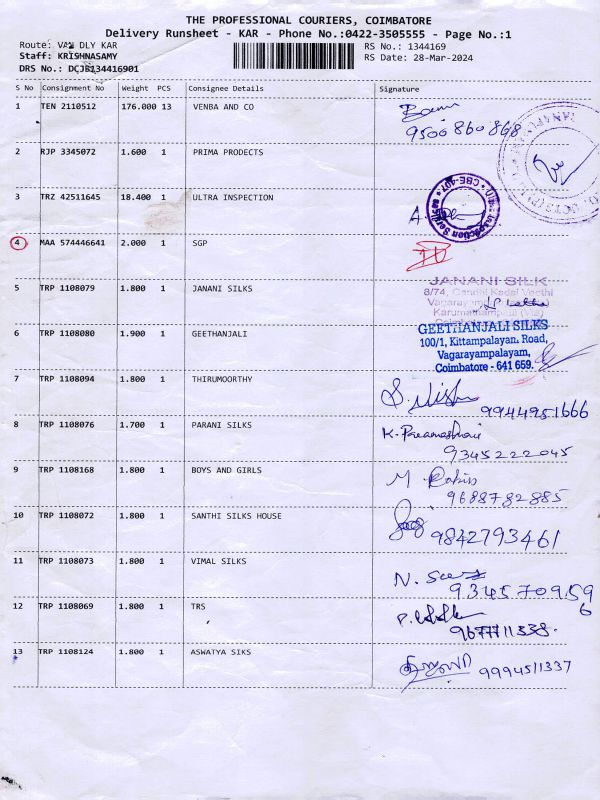 THE PROFESSIONAL COURIERS, COIMBATORE
Delivery Runsheet - KAR - Phone No.:0422-3505555 - Page No.:1
Route: VAN DLY KAR
Staff: KRISHNASAMY
DRS No.: DCJB134416901
RS No.: 1344169
RS Date: 28-Mar-2024
S No Consignment No Weight PCS Consignee Details Signature
1 TEN 2110512 176.000 13 VENBA AND CO
9500860868
2 RJP 3345072 1.600 1 PRIMA PRODECTS
3 TRZ 42511645 18.400 1 ULTRA INSPECTION
CBE-407
4 MAA 574446641 2.000 1 SGP
5 TRP 1108079 1.800 1 JANANI SILKS
JANANI SILK
8/74, Gandhi Kadai Veethi
6 TRP 1108080 1.900 1 GEETHANJALI
GEETHANJALI SILKS
100/1, Kittampalayan. Road,
Vagarayampalayam,
Coimbatore - 641 659.
7 TRP 1108094 1.800 1 THIRUMOORTHY
9944951666
8 TRP 1108076 1.700 1 PARANI SILKS
9345222045
9 TRP 1108168 1.800 1 BOYS AND GIRLS
9688782885
10 TRP 1108072 1.800 1 SANTHI SILKS HOUSE
9842793461
11 TRP 1108073 1.800 1 VIMAL SILKS
9345709596
12 TRP 1108069 1.800 1 TRS
9677711338.
13 TRP 1108124 1.800 1 ASWATYA SIKS
9994511337